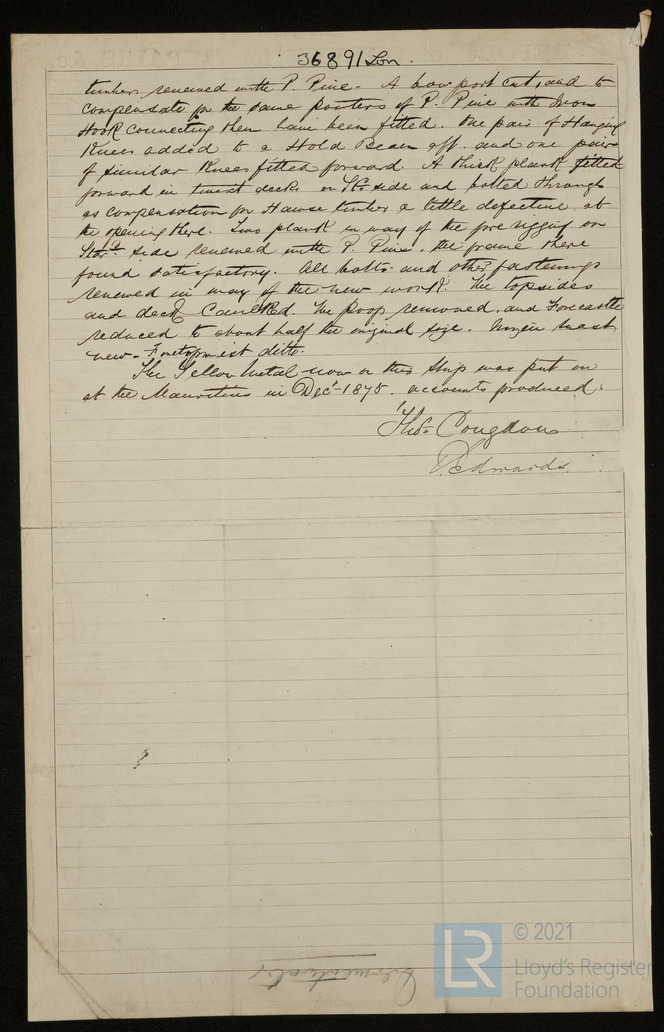 36891 Lon.
timbers renewed with P. Pine. A bow port cut, and to
compensate for the same pointers of P. Pine with Iron
Hook connecting them have been fitted. One pair of Hanging
Knees added to a Hold Beam aft. and one pair
of similar Knees fitted forward. A thick plank fitted
forward in tween decks on side and bolted through
as compensation for Hawse timber a little defective at
the opening there. Two plank in way of the fore rigging on
Starbd side renewed with P. Pine, the frame there
found satisfactory. All bolts and other fastenings
renewed in way of the new work. The topsides
and deck Caulked. The Poop removed, and Forecastle
reduced to about half the original size. Mizen mast
new - Foretopmast ditto.
The Yellow Metal now on this Ship was put on
at the Mauritius in Decr 1875. accounts produced.
Thos Congdon
Edwards.
© 2021
LR
Lloyd's Register
Foundation